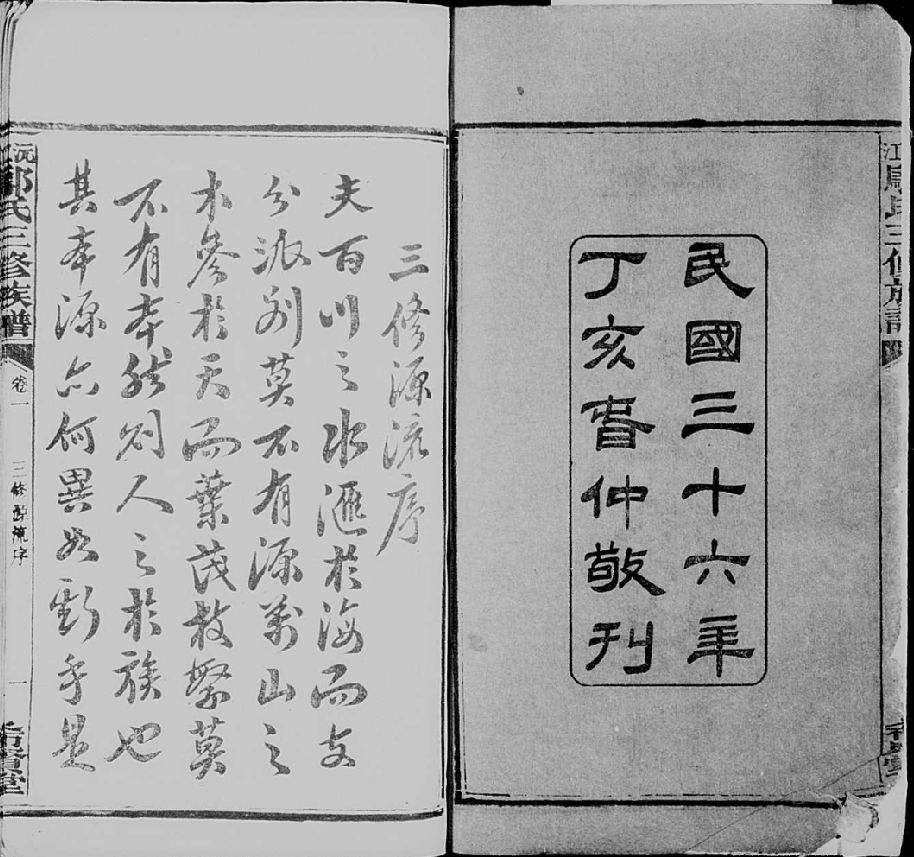 民國三十六年
丁亥旾仲敬刊
三修源流序
夫百川之水滙於海而支
分派别莫不有源萬山之
木參於天而葉茂枝繁莫
不有本然則人之於族也
其本源亦何異如斯乎是
氏三修族譜
卷一
三修源流序
一
賢堂